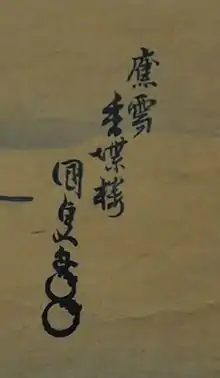 應需
香蝶樓
國貞画